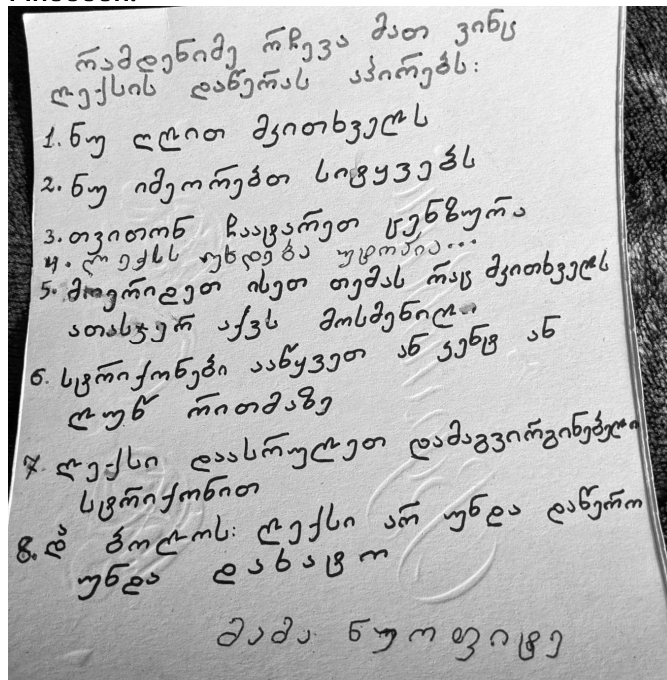 რამდენიმე რჩევა მათ ვინც
ლექსის დაწერას აპირებს:
1. ნუ ღლით მკითხველს
2. ნუ იმეორებთ სიტყვებს
3. თვითონ ჩაატარეთ ცენზურა
4. ლექსს უხდება უტოპია...
5. მოერიდეთ ისეთ თემას რაც მკითხველს
ათასჯერ აქვს მოსმენილი
6. სტრიქონები ააწყვეთ ან კენტ ან
ლუწ რითმაზე
7. ლექსი დაასრულეთ დამაგვირგინებელი
სტრიქონით
8. და ბოლოს: ლექსი არ უნდა დაწერო
უნდა დახატო
მამა ნეოფიტე